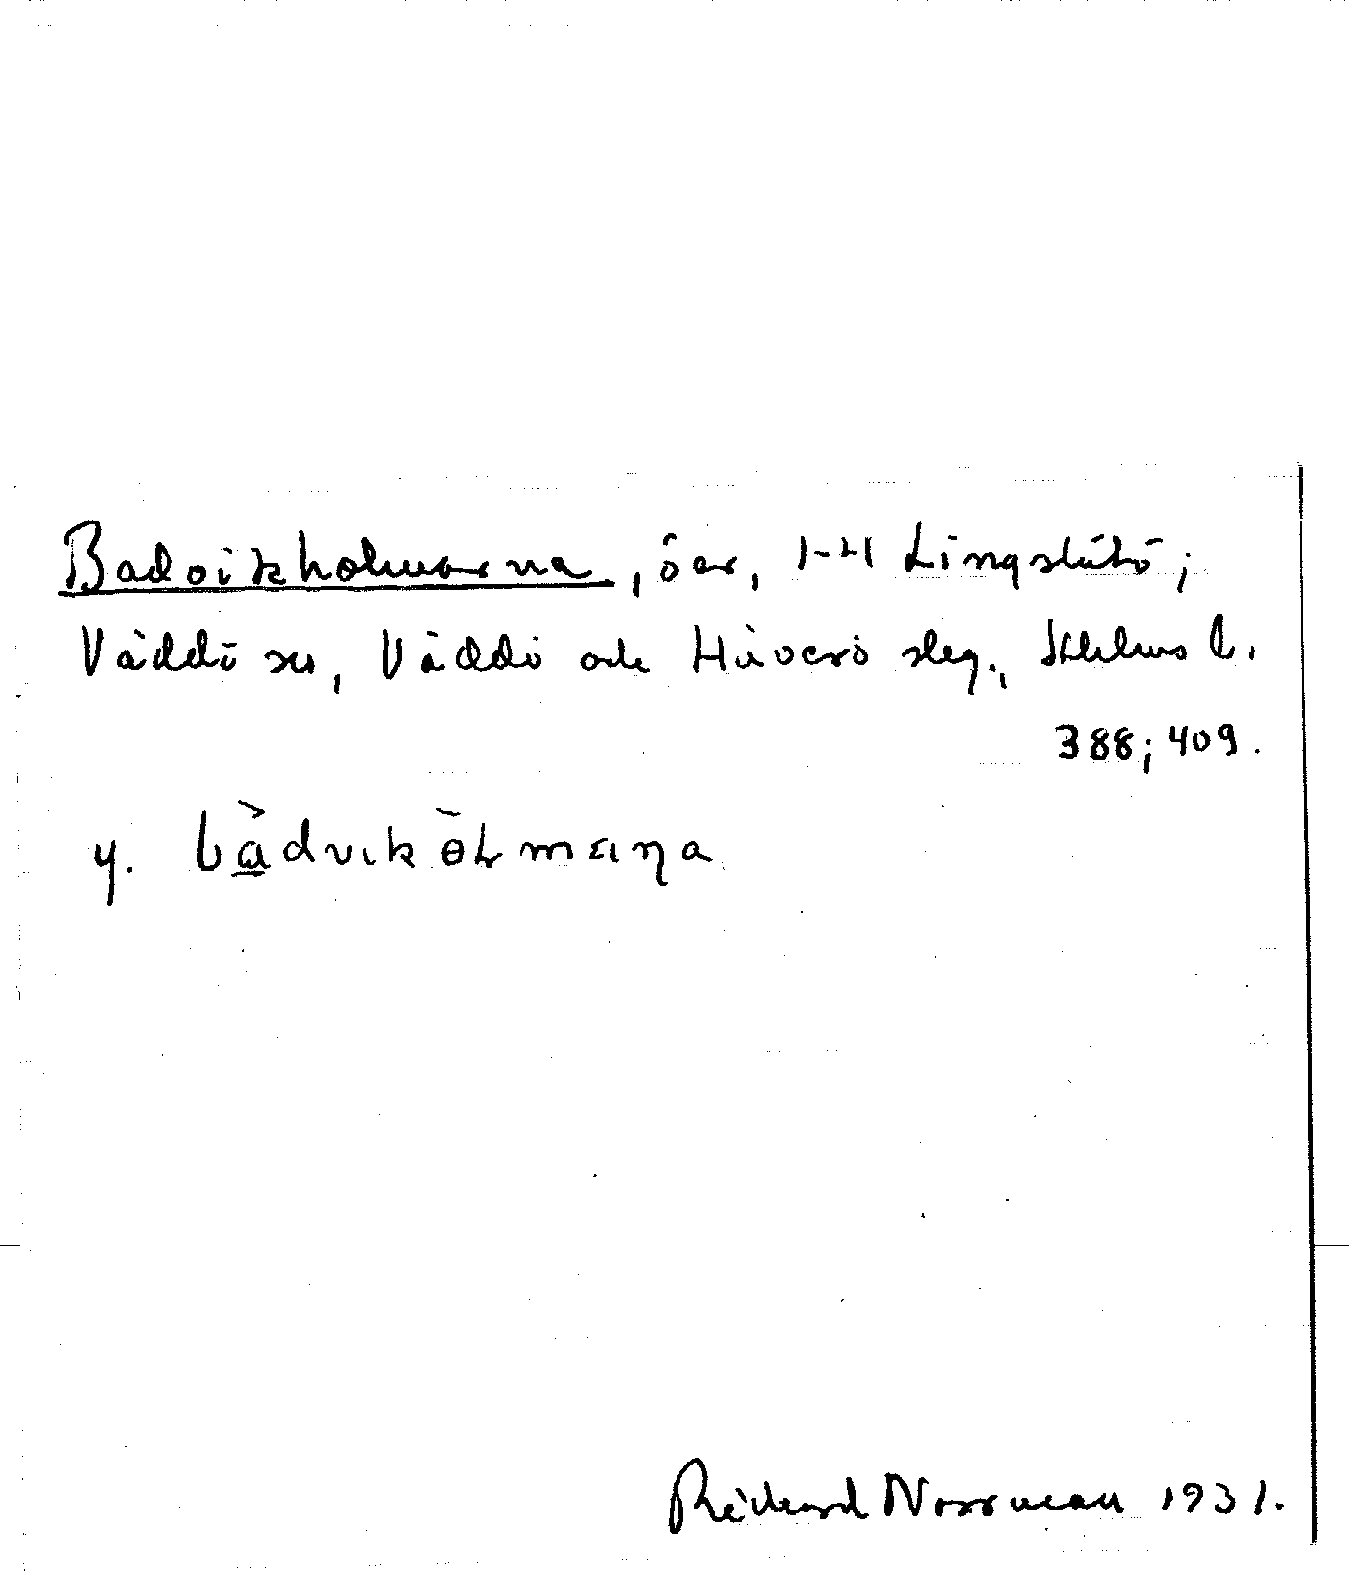 Badvikholmarna, öar, 1-4 Lingslätö;
Väddö sn, Väddö och Häverö slag, Sthlms l.
388; 409.
y. bàdvikòlmaṇa
Richard Norrman 1931.